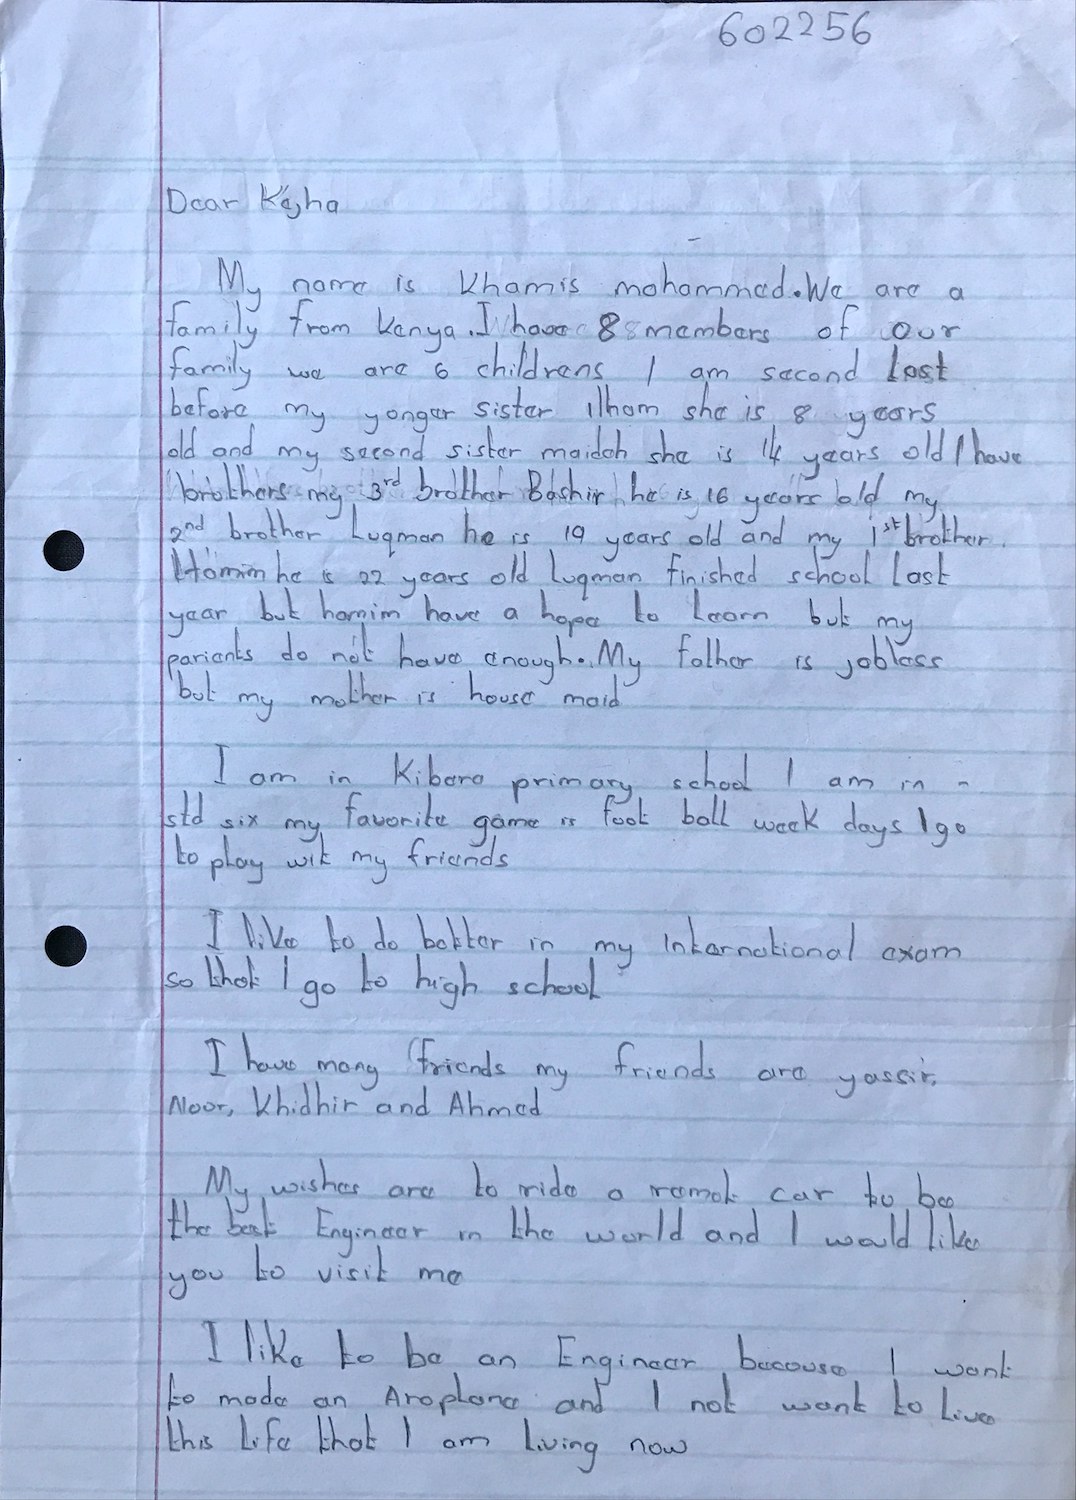 602256
Dear Kejha
My name is Khamis mohammed. We are a
family from Kenya. I have 8 members of our
family we are 6 childrens I am second last
before my yonger sister Ilham she is 8 years
old and my second sister maidah she is 14 years old I have
brothers my 3rd brother Bashir he is 16 years old my
2nd brother Luqman he is 19 years old and my 1st brother.
Hamim he is 22 years old luqman finished school last
year but hamim have a hope to learn but my
parients do not have enough. My father is jobless
but my mother is house maid
I am in Kibara primary school I am in -
std six my favorite game is foot ball week days I go
to play wit my friends
I like to do better in my International exam
so that I go to high school
I have many friends my friends are yassir,
Noor, Khidhir and Ahmed
My wishes are to ride a remot car to be
the best Engineer in the world and I would like
you to visit me
I like to be an Engineer because I want
to made an Aroplane and I not want to live
this life that I am living now